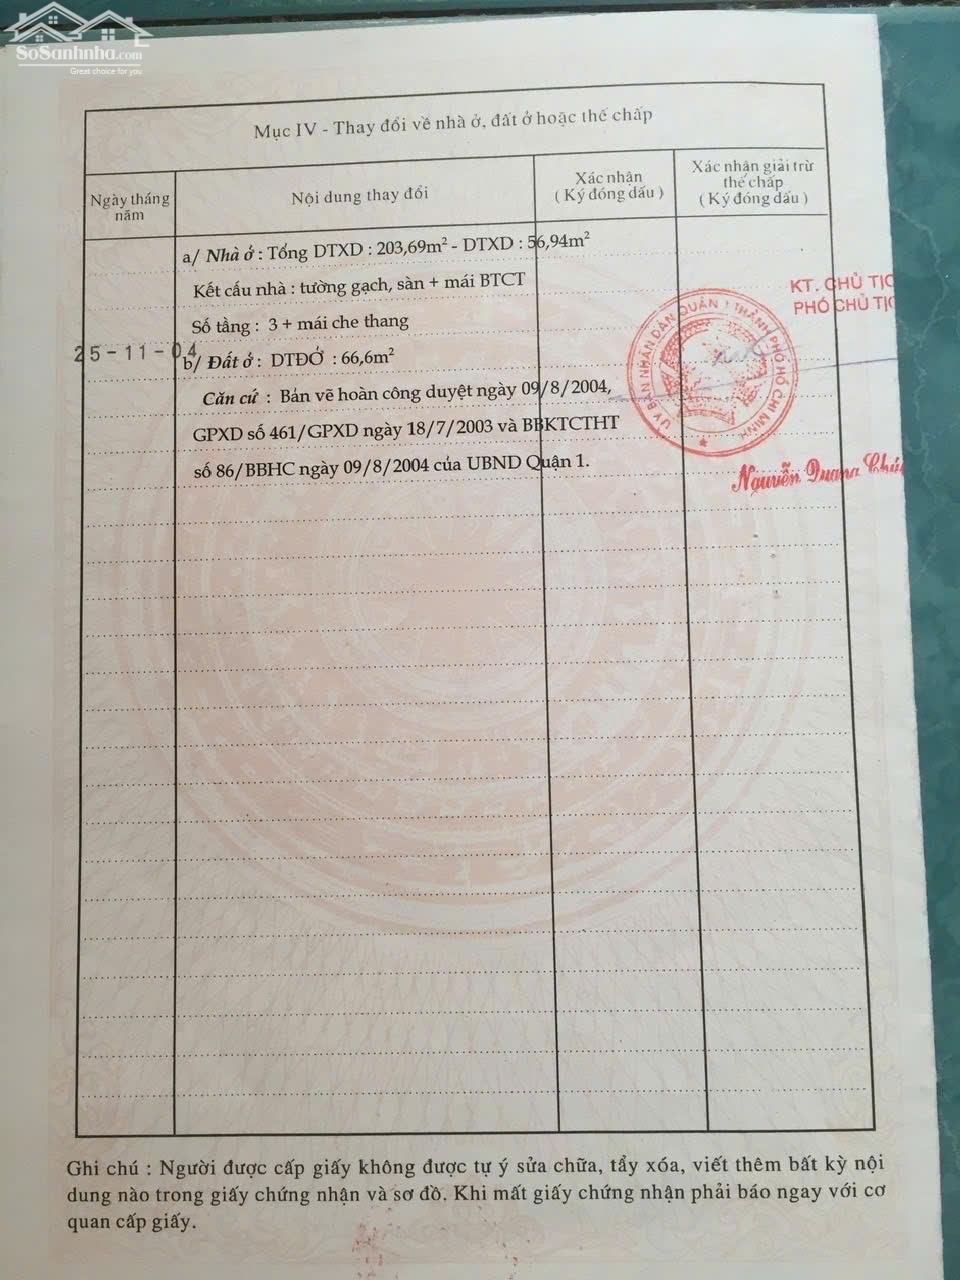 SoSanhnha.com
Great choice for you
Mục IV - Thay đổi về nhà ở, đất ở hoặc thế chấp
Ngày tháng năm
Nội dung thay đổi
Xác nhận
( Ký đóng dấu )
Xác nhận giải trừ thế chấp
( Ký đóng dấu )
a/ Nhà ở : Tổng DTXD : 203,69m² - DTXD : 56,94m²
Kết cấu nhà : tường gạch, sàn + mái BTCT
Số tầng : 3 + mái che thang
25-11-04
b/ Đất ở : DTĐỞ : 66,6m²
Căn cứ : Bản vẽ hoàn công duyệt ngày 09/8/2004,
GPXD số 461/GPXD ngày 18/7/2003 và BBKTCTHT
số 86/BBHC ngày 09/8/2004 của UBND Quận 1.
KT. CHỦ TỊC
PHÓ CHỦ TỊC
ỦY BAN NHÂN DÂN QUẬN 1 THÀNH PHỐ HỒ CHÍ MINH
Nguyễn Quang Chú
Ghi chú : Người được cấp giấy không được tự ý sửa chữa, tẩy xóa, viết thêm bất kỳ nội
dung nào trong giấy chứng nhận và sơ đồ. Khi mất giấy chứng nhận phải báo ngay với cơ
quan cấp giấy.